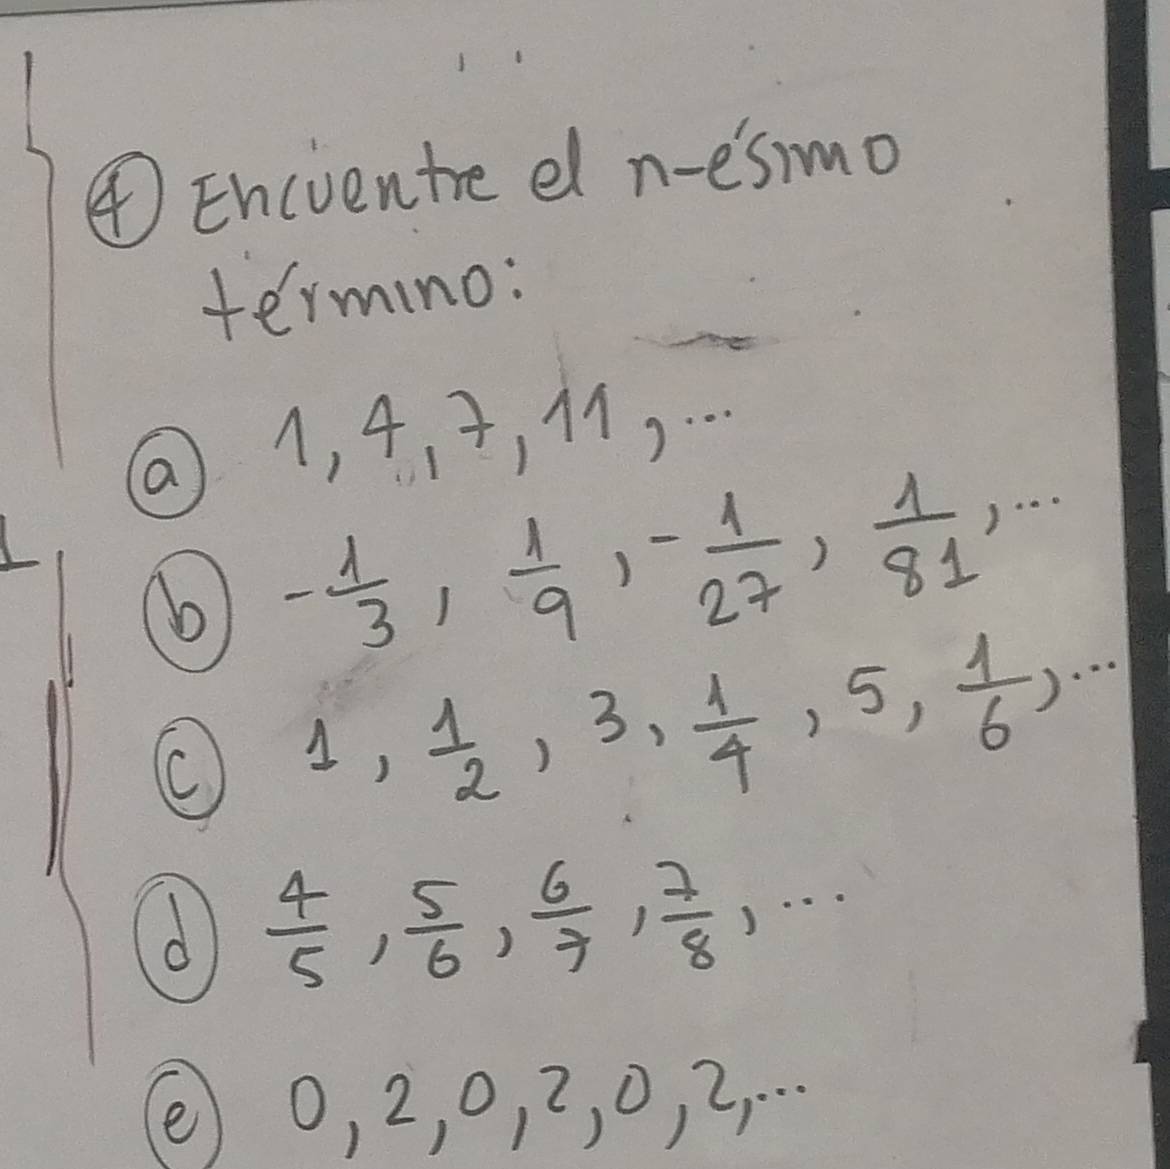 ④ Encuentre el n-ésimo
término:
ⓐ 1, 4, 7, 11, ...
ⓑ -1/3, 1/9, -1/27, 1/81, ...
ⓒ 1, 1/2, 3, 1/4, 5, 1/6, ...
ⓓ 4/5, 5/6, 6/7, 7/8, ...
ⓔ 0, 2, 0, 2, 0, 2, ...